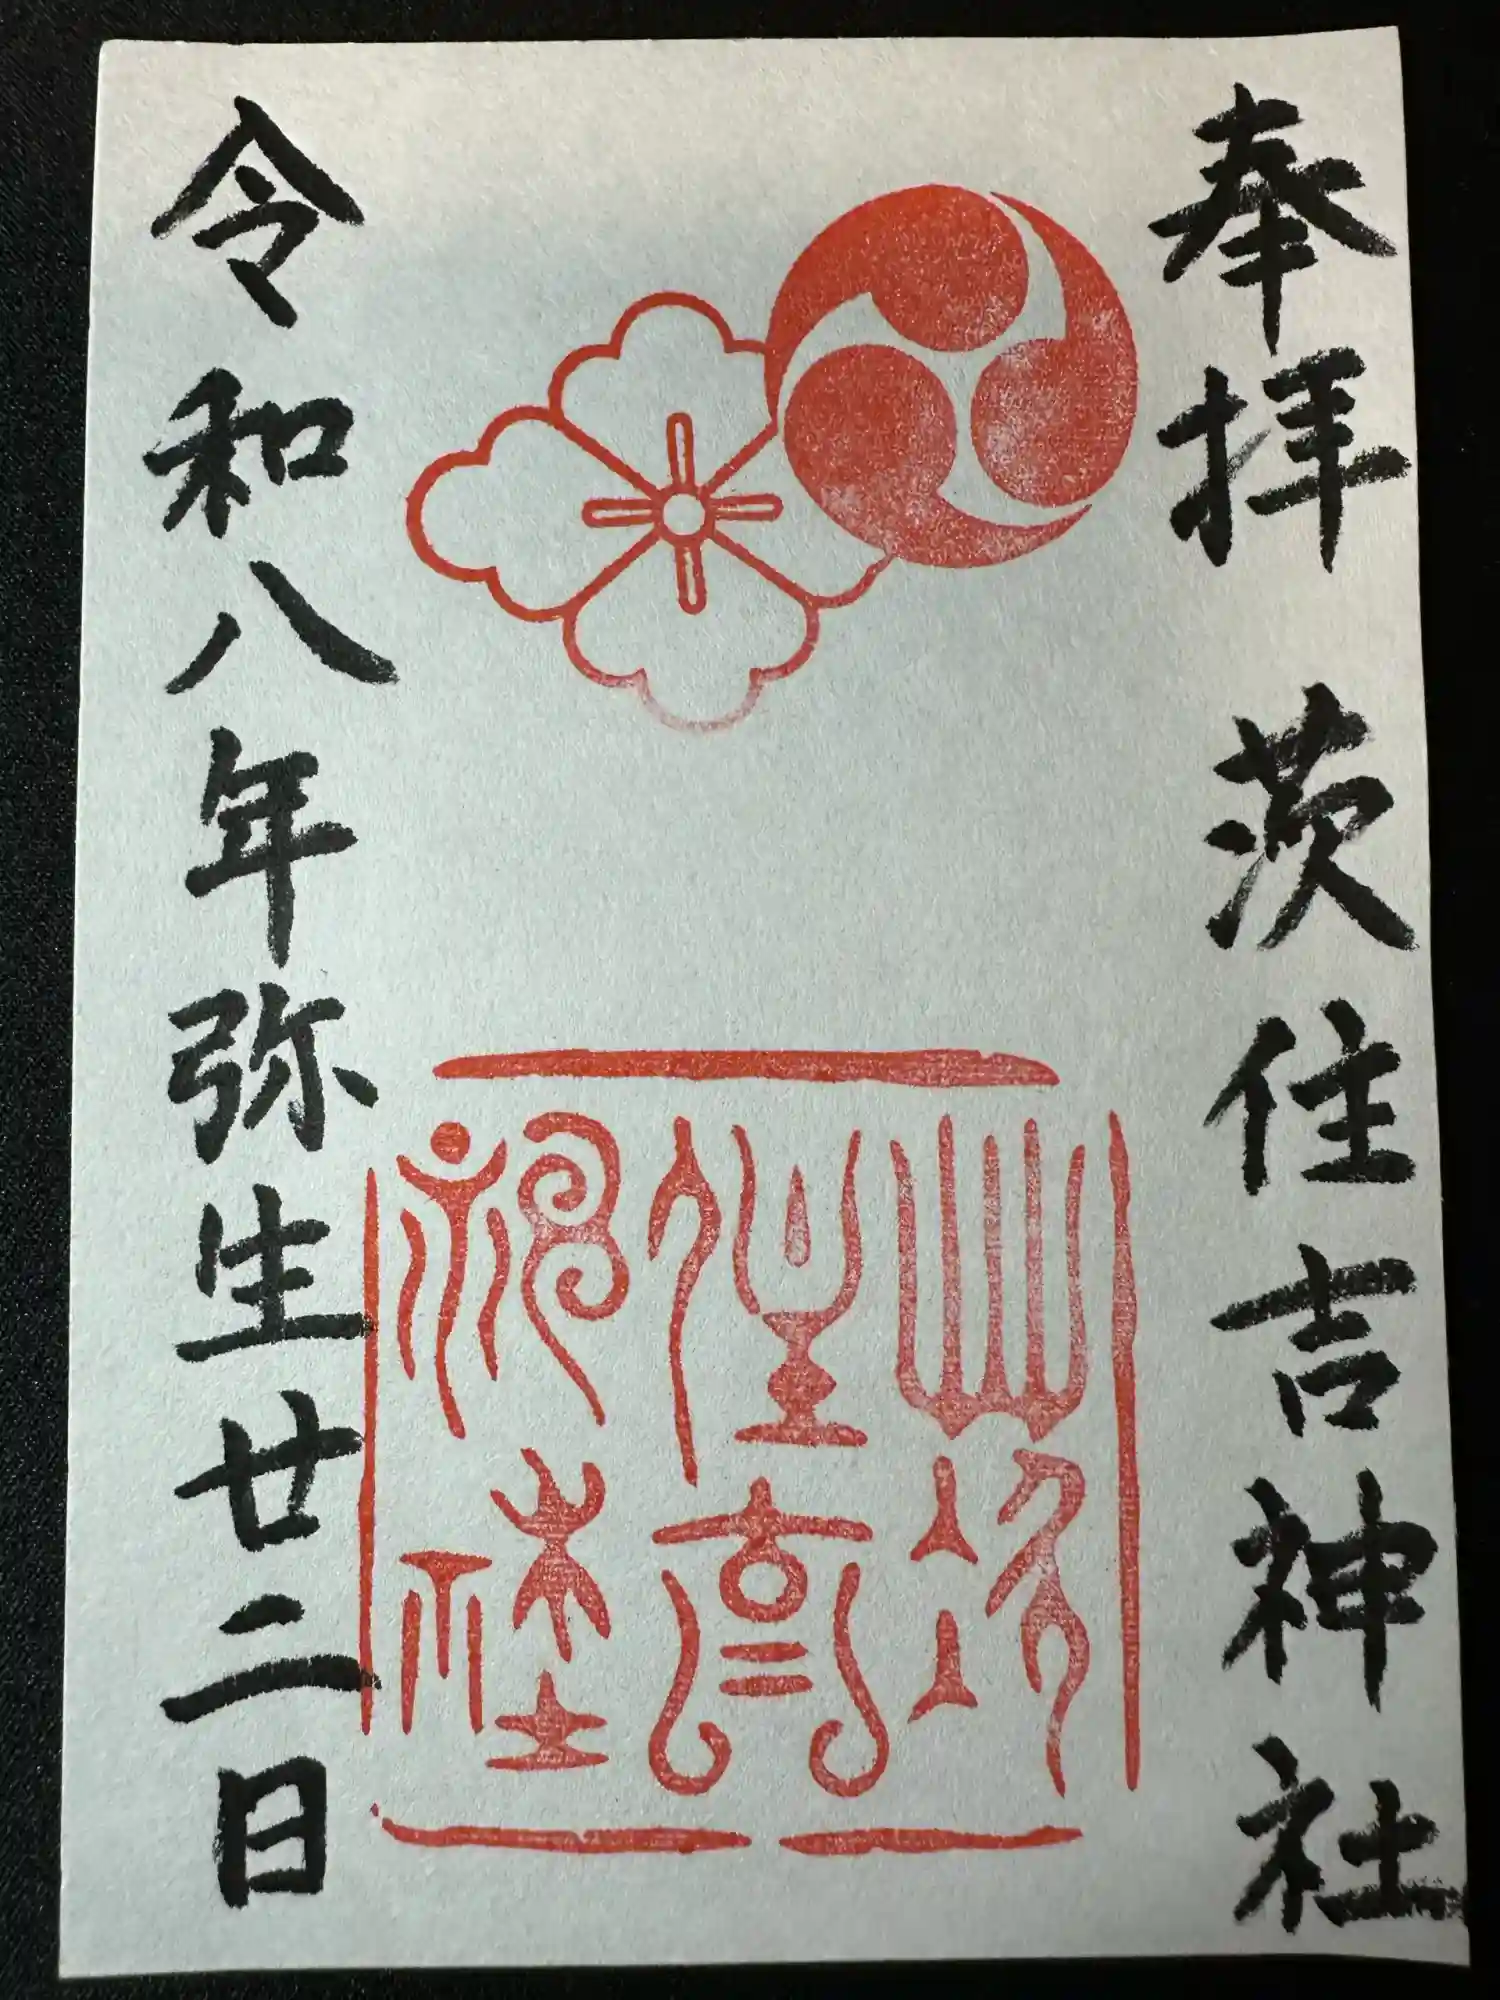 奉拝 茨住吉神社
茨
住吉
神社
令和八年弥生廿二日